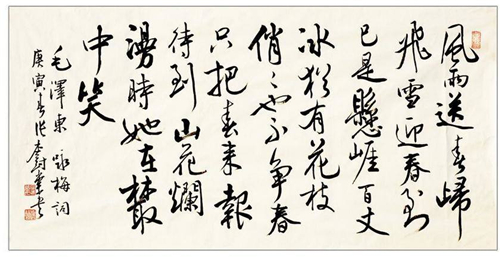 風雨送春歸
飛雪迎春到
已是懸崖百丈
冰猶有花枝
俏〻也不爭春
只把春來報
待到山花爛
漫時她在叢
中笑
毛澤東詠梅詞
庚寅春